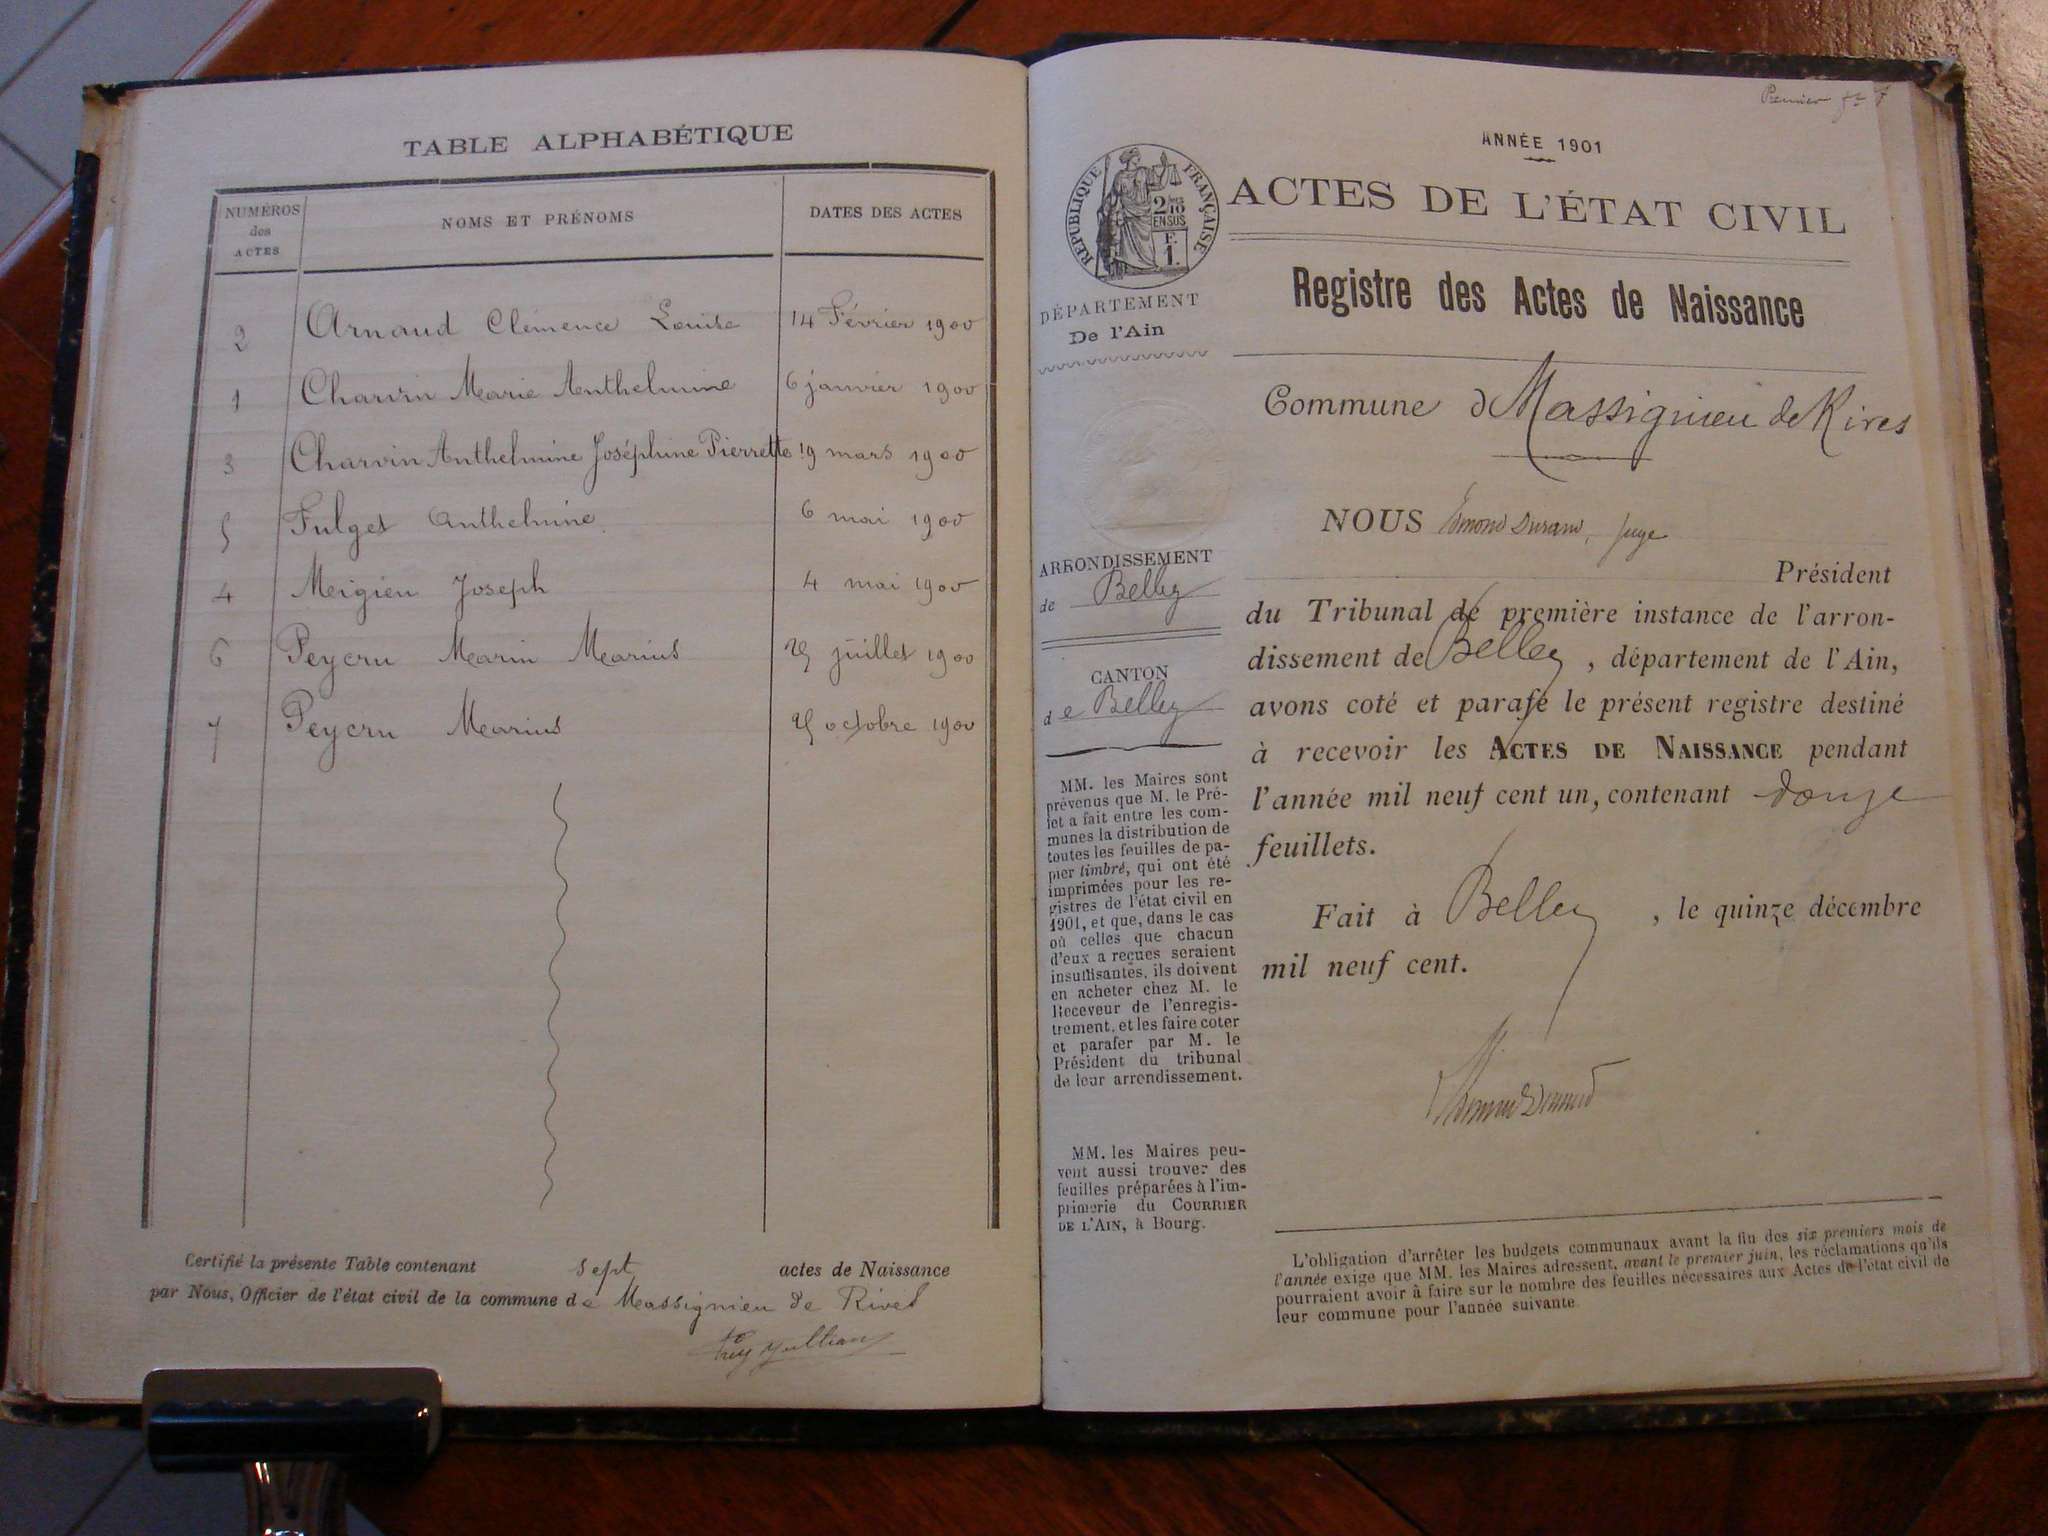 TABLE ALPHABÉTIQUE
NUMÉROS des ACTES
NOMS ET PRÉNOMS
DATES DES ACTES
2 Arnaud Clémence Louise 14 Février 1900
1 Charvin Marie Anthelmine 6 janvier 1900
3 Charvin Anthelmine Joséphine Pierrette 19 mars 1900
5 Fulget Anthelmine 6 mai 1900
4 Meigien Joseph 4 mai 1900
6 Peycru Marin Marius 25 juillet 1900
7 Peycru Marius 25 octobre 1900
Certifié la présente Table contenant sept actes de Naissance
par Nous, Officier de l'état civil de la commune de Massignieu de Rives
Premier
ANNÉE 1901
ACTES DE L'ÉTAT CIVIL
Registre des Actes de Naissance
RÉPUBLIQUE FRANÇAISE
2/10
EN SUS
F.
1.
DÉPARTEMENT
De l'Ain
Commune d Massignieu de Rives
ARRONDISSEMENT
de Belley
CANTON
de Belley
MM. les Maires sont
prévenus que M. le Pré-
fet a fait entre les com-
munes la distribution de
toutes les feuilles de pa-
pier timbré, qui ont été
imprimées pour les re-
gistres de l'état civil en
1901, et que, dans le cas
où celles que chacun
d'eux a reçues seraient
insuffisantes, ils doivent
en acheter chez M. le
Receveur de l'enregis-
trement, et les faire coter
et parafer par M. le
Président du tribunal
de leur arrondissement.
MM. les Maires peu-
vent aussi trouver des
feuilles préparées à l'im-
primerie du COURRIER
DE L'AIN, à Bourg.
NOUS Edmond Durand, juge
Président
du Tribunal de première instance de l'arron-
dissement de Belley, département de l'Ain,
avons coté et parafé le présent registre destiné
à recevoir les ACTES DE NAISSANCE pendant
l'année mil neuf cent un, contenant douze
feuillets.
Fait à Belley, le quinze décembre
mil neuf cent.
Edmond Durand
L'obligation d'arrêter les budgets communaux avant la fin des six premiers mois de
l'année exige que MM. les Maires adressent, avant le premier juin, les réclamations qu'ils
pourraient avoir à faire sur le nombre des feuilles nécessaires aux Actes de l'état civil de
leur commune pour l'année suivante.